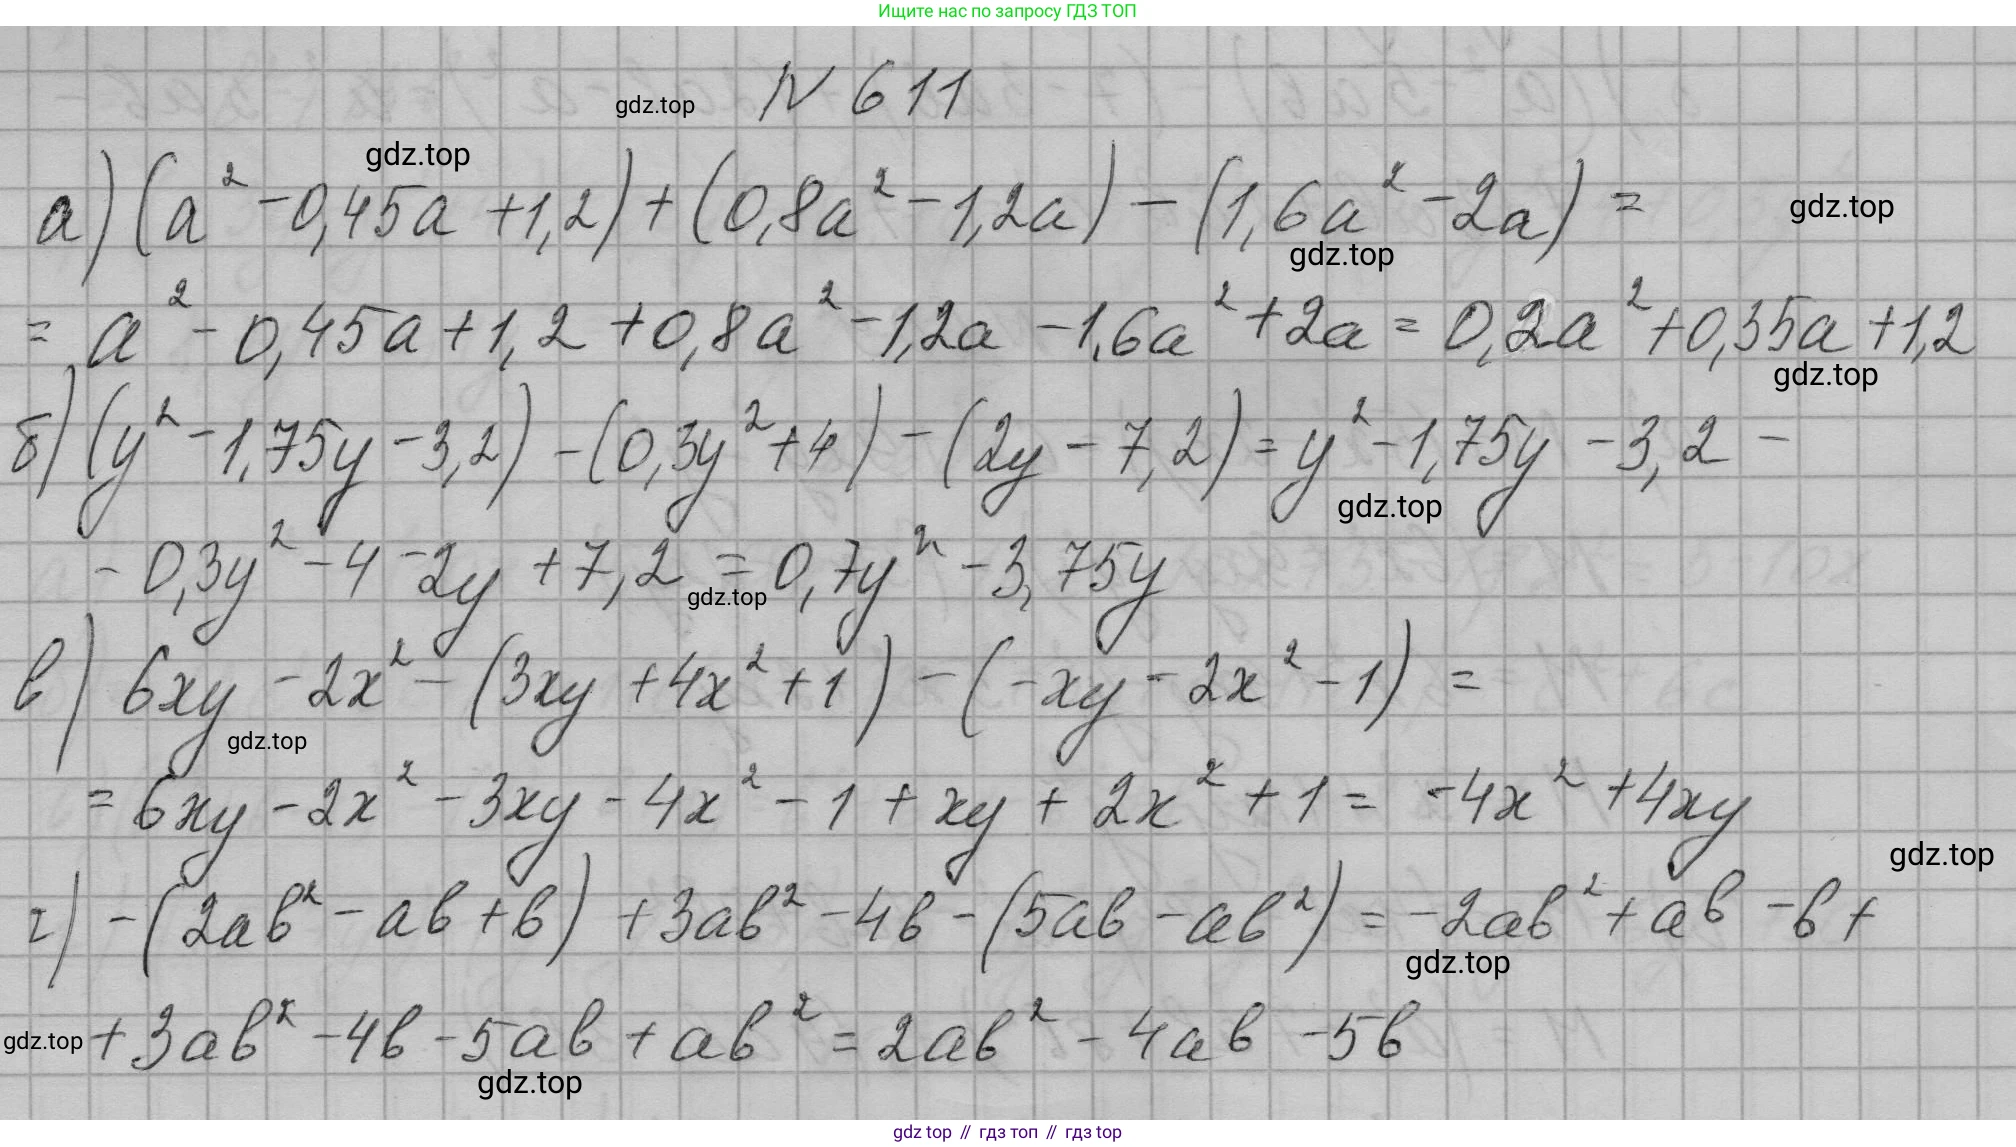 Ищите нас по запросу ГДЗ ТОП
N 611
gdz.top
gdz.top
а) (a² - 0,45a + 1,2) + (0,8a² - 1,2a) - (1,6a² - 2a) =
gdz.top
gdz.top
= a² - 0,45a + 1,2 + 0,8a² - 1,2a - 1,6a² + 2a = 0,2a² + 0,35a + 1,2
gdz.top
б) (y² - 1,75y - 3,2) - (0,3y² + 4) - (2y - 7,2) = y² - 1,75y - 3,2 -
gdz.top
- 0,3y² - 4 - 2y + 7,2 = 0,7y² - 3,75y
gdz.top
в) 6xy - 2x² - (3xy + 4x² + 1) - (-xy - 2x² - 1) =
gdz.top
= 6xy - 2x² - 3xy - 4x² - 1 + xy + 2x² + 1 = -4x² + 4xy
gdz.top
г) -(2ab² - ab + b) + 3ab² - 4b - (5ab - ab²) = -2ab² + ab - b +
gdz.top
gdz.top
+ 3ab² - 4b - 5ab + ab² = 2ab² - 4ab - 5b
gdz.top
gdz top // гдз топ // гдз top